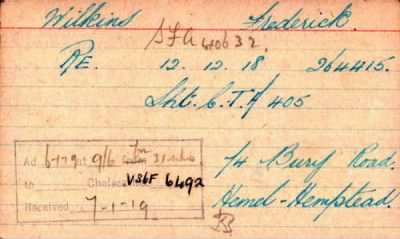 Wilkins Frederick.
SFA 40632.
R.E. 12.12.18 264415.
Sht. 405
Ad 9/6
to Chelsea VSBF 6492
Received 7-1-19
14 Bury Road.
Hemel-Hempstead.